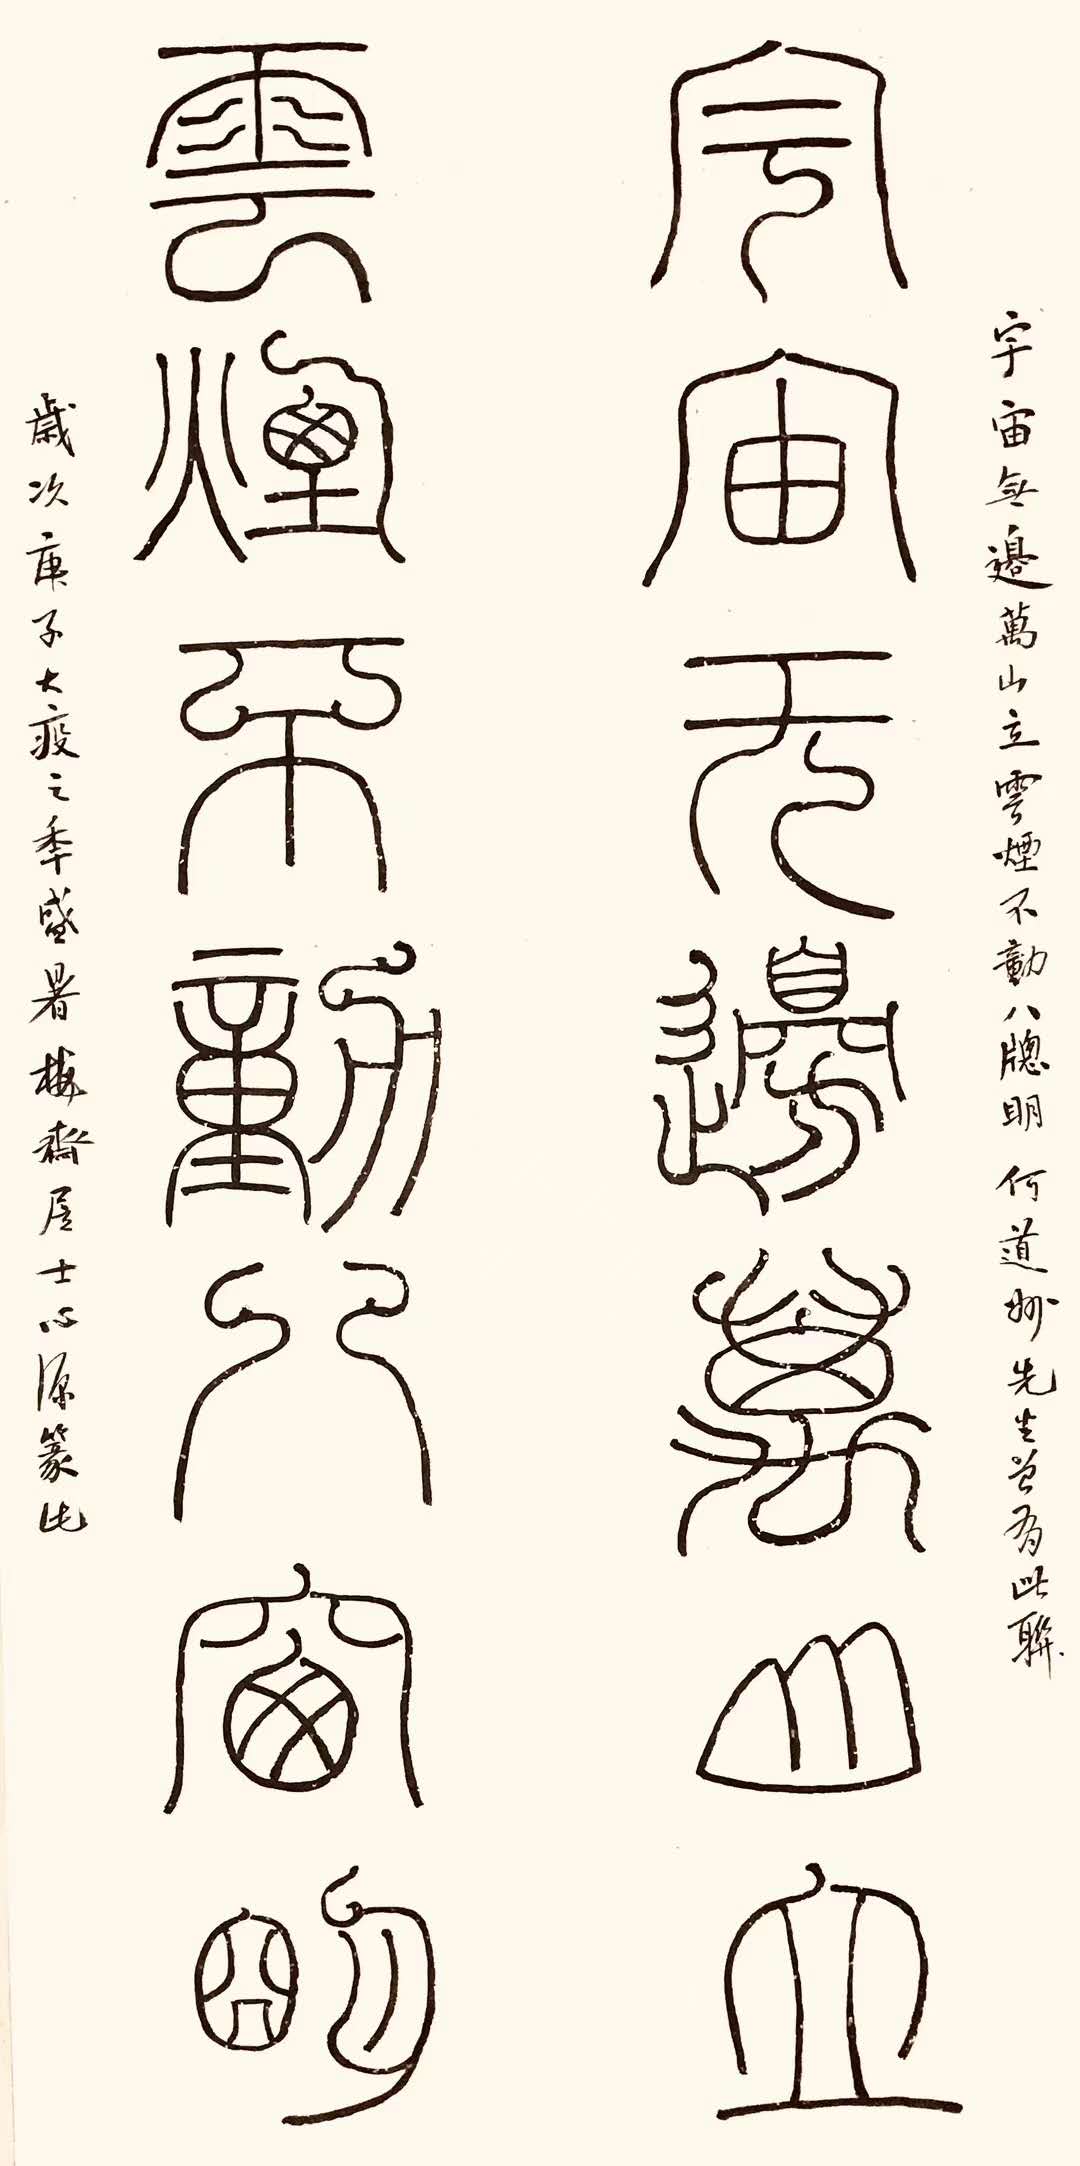 宇宙無邊萬山立雲煙不動八牕明 何道妙先生曾有此聯
宇宙无邊萬山立
雲煙不動八窗明
歲次庚子大疫之年盛暑梅齋居士心源篆此